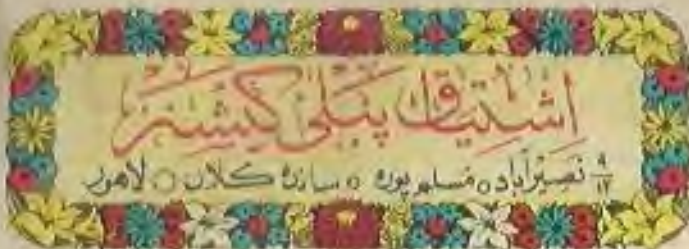 اشتیاق پبلی کیشنز
۹/۱۲ نصیر آباد ○ مسلم پورہ ○ ساندہ کلاں ○ لاہور